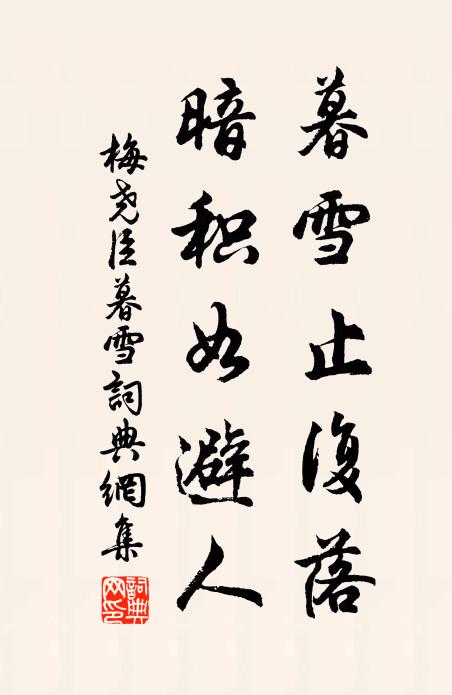 暮雪止復落
暗积如避人
梅尧臣暮雪詞典網集
詞典网印